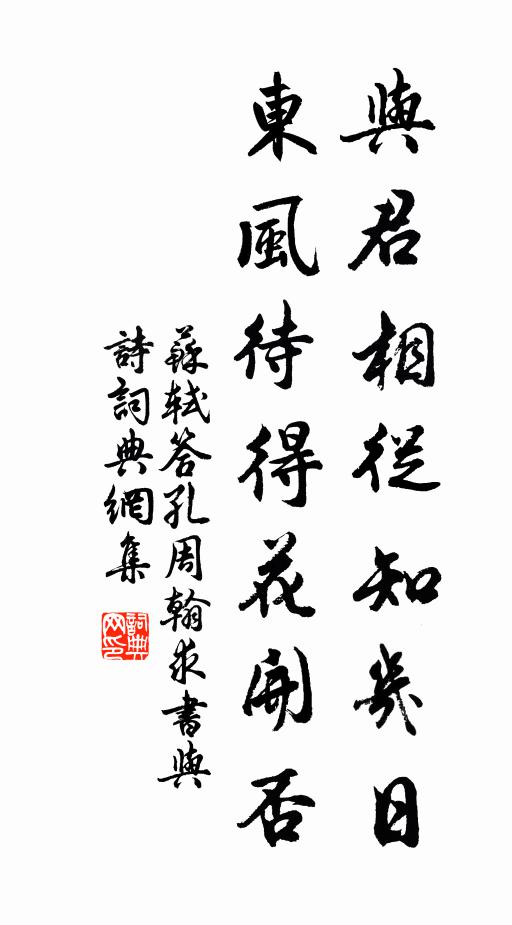 與君相從知幾日
東風待得花開否
蘇軾答孔周翰求書與
詩詞典網集
詞典
网印